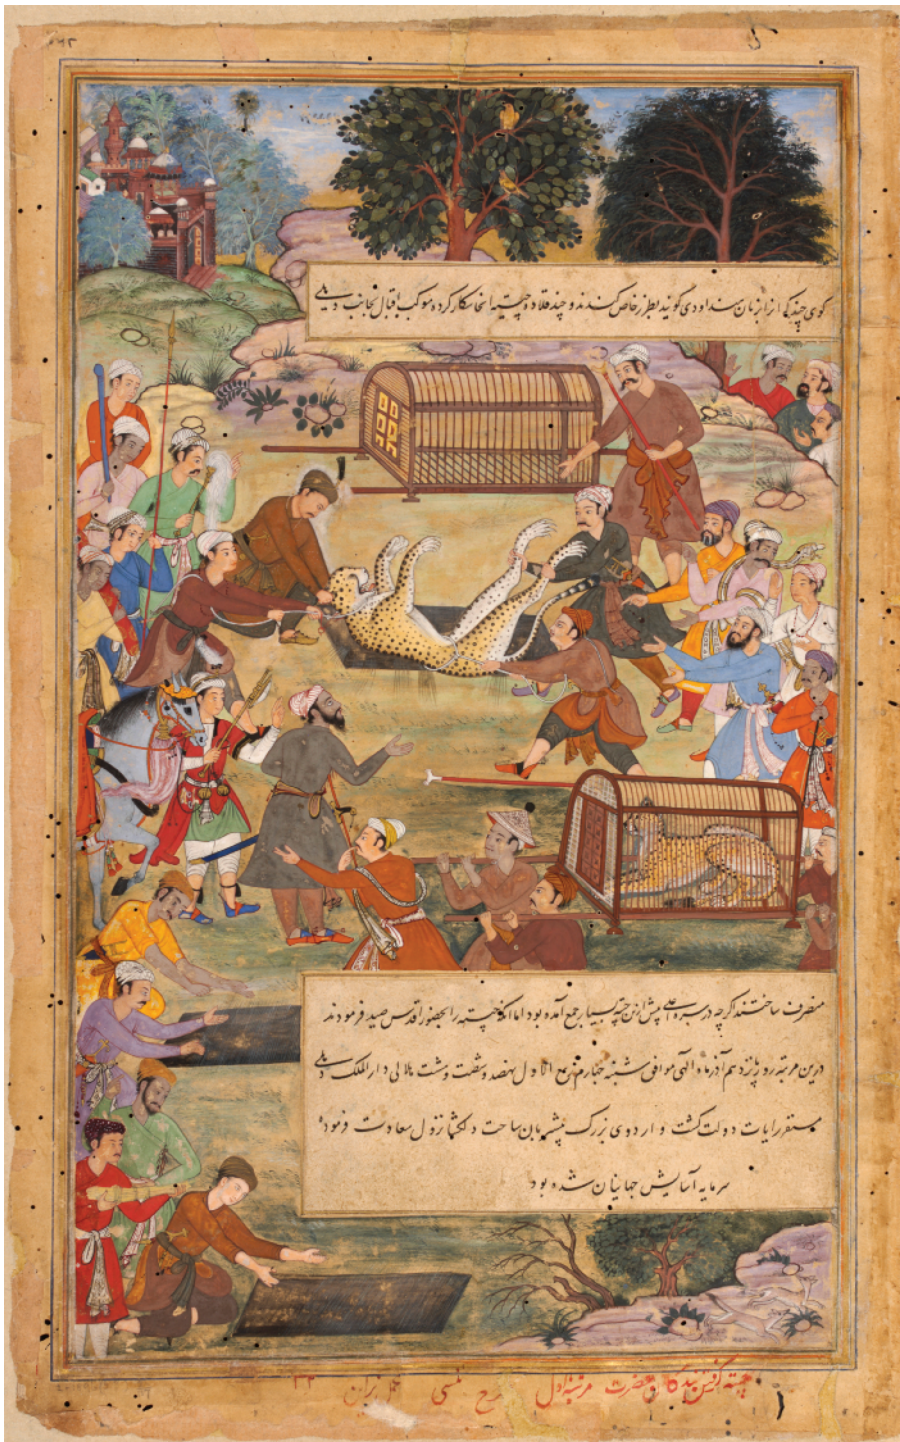 کوی چند که آنرا بزبان هند اودی گویند بطرز خاص کندند و چند قلاده چیته آنجا شکار کرده موکب اقبال بجانب دهلی
منصرف ساختند اگرچه در سرکار اعلی پیش ازین چیته بسیار جمع آمده بود اما آنکه چیته را بحضور اقدس صید فرمودند
درین مرتبه روز پانزدهم آذرماه الهی موافق شنبه چهارم ربیع الاول نهصد و شصت و هشت هلالی دار الملک دهلی
مستقر رایات دولت گشت و اردوی بزرگ پیشتر باین ساحت دلگشا نزول سعادت فرموده
سرمایه آسایش جهانیان شده بود
چیته گرفتن بندگان حضرت مرتبه اول طرح تلسی عمل نراین